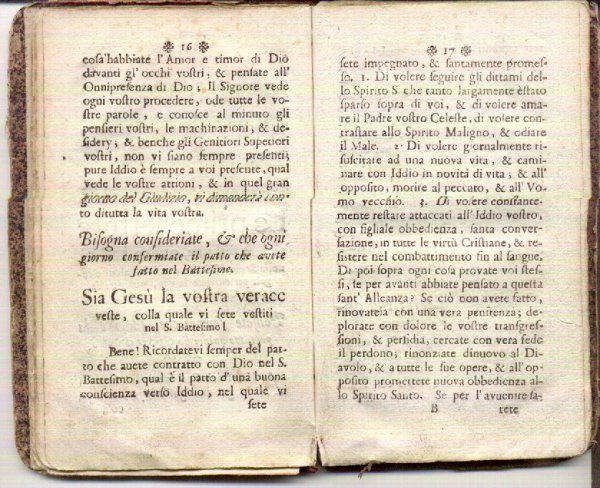 ❉ 16 ❉
cosa'habbiate l'Amor e timor di Dio
davanti gl'occhi vostri, & pensate all'
Onnipresenza di Dio; Il Signore vede
ogni vostro procedere, ode tutte le vo-
stre parole, e conosce al minuto gli
pensieri vostri, le machinazioni, & de-
sidery; & benche gli Genitori Superiori
vostri, non vi siano sempre presenti;
pure Iddio è sempre a voi presente, qual
vede le vostre attioni, & in quel gran
giorno del Giudizio, vi dimanderà con-
to ditutta la vita vostra.
Bisogna consideriate, & che ogni
giorno confermiate il patto che avete
fatto nel Battesimo.
Sia Gesù la vostra verace
veste, colla quale vi sete vestiti
nel S. Battesimo!
Bene! Ricordatevi semper del pat-
to che avete contratto con Dio nel S.
Battesimo, qual è il patto d'una buona
conscienza verso Iddio, nel quale vi
sete
❉ 17 ❉
sete impegnato, & santamente promes-
so. 1. Di volere seguire gli dittami del-
lo Spirito S. che tanto largamente èstato
sparso sopra di voi, & di volere ama-
re il Padre vostro Celeste, di volere con-
trastare allo Spirito Maligno, & odiare
il Male. 2. Di volere giornalmente ri-
suscitare ad una nuova vita, & cami-
nare con Iddio in novità di vita; & all'
opposito, morire al peccato, & all' Vo-
mo vecchio. 3. Di volere constante-
mente restare attaccati all' Iddio vostro,
con figliale obbedienza, santa conver-
sazione, in tutte le virtù Cristiane, & re-
sistere nel combattimento fin al sangue.
Di poi sopra ogni cosa provate voi stes-
si, se per avanti abbiate pensato a questa
sant' Alleanza? Se ciò non avete fatto,
rinovatela con una vera penitenza; de-
plorate con dolore le vostre transgres-
sioni, & perfidia, cercate con vera fede
il perdono; rinonziate dinuovo al Di-
avolo, & a tutte le sue opere, & all' op-
posito promettete nuova obbedienza al-
lo Spirito Santo. Se per l'avvenire sa-
B rete